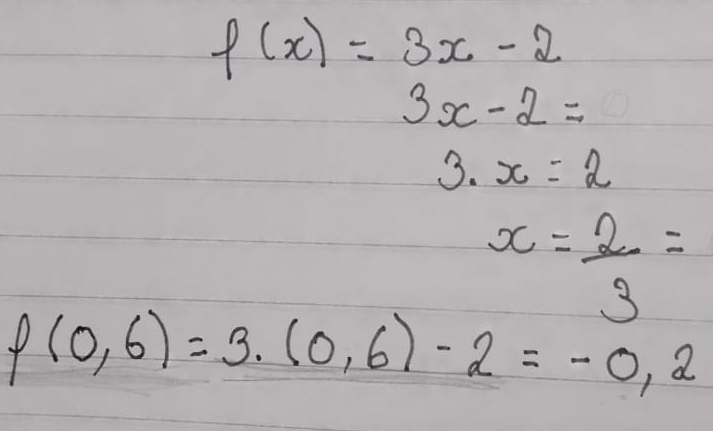 f(x) = 3x - 2
3x - 2 = 0
3. x = 2
x = 2/3 =
f(0,6) = 3. (0,6) - 2 = -0,2